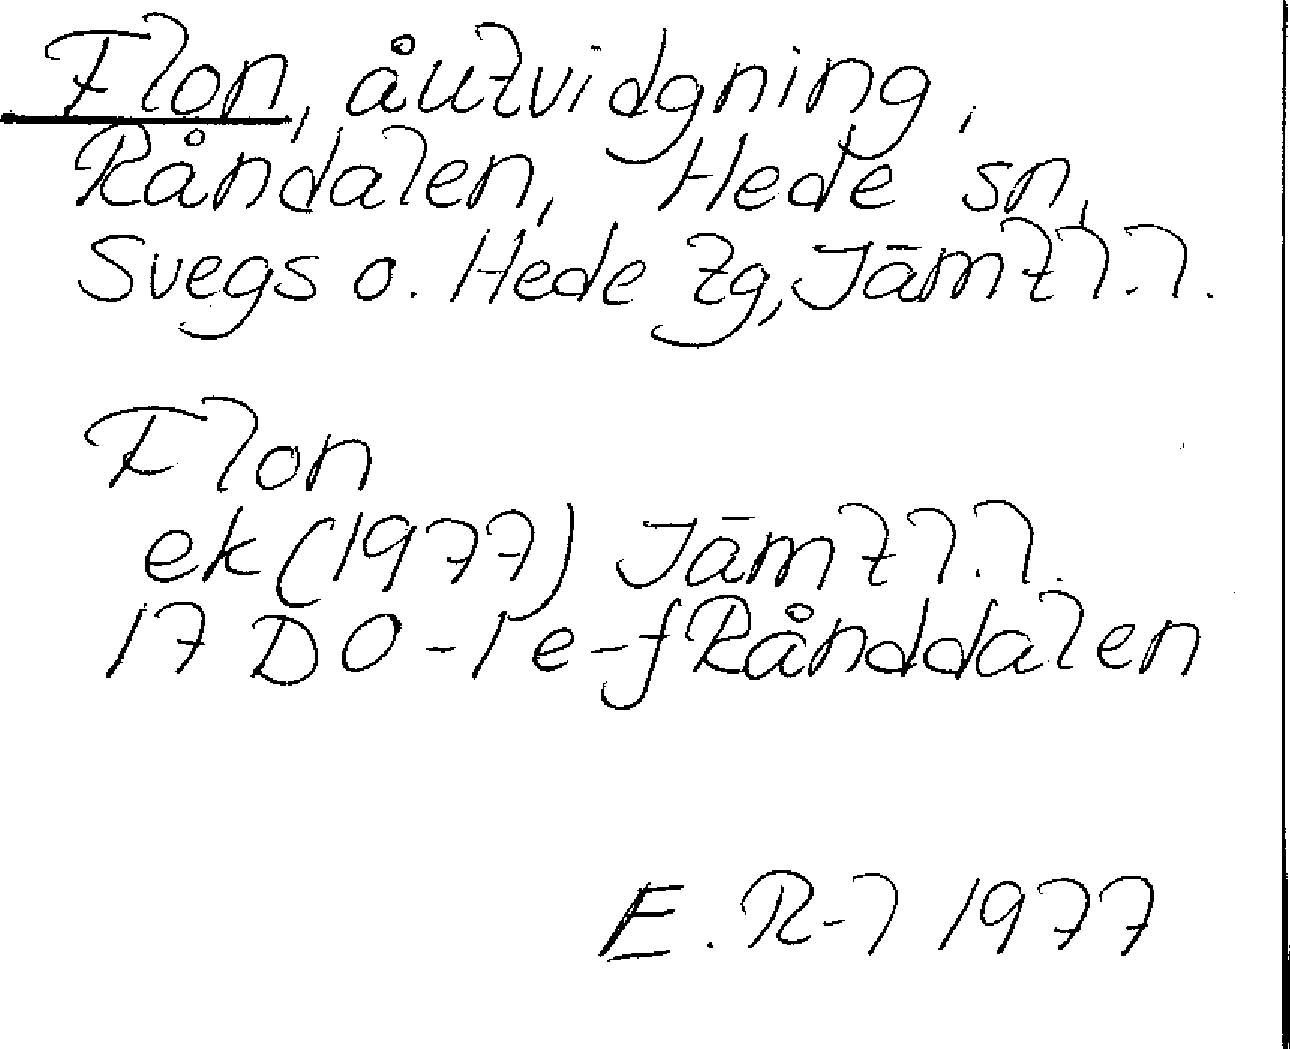 Flon, åutvidgning,
Råndalen, Hede sn,
Svegs o. Hede tg, Jämtl.l.
Flon
ek (1977) Jämtl.l.
17 D 0 - 1 e-f Rånddalen
E. R-l 1977